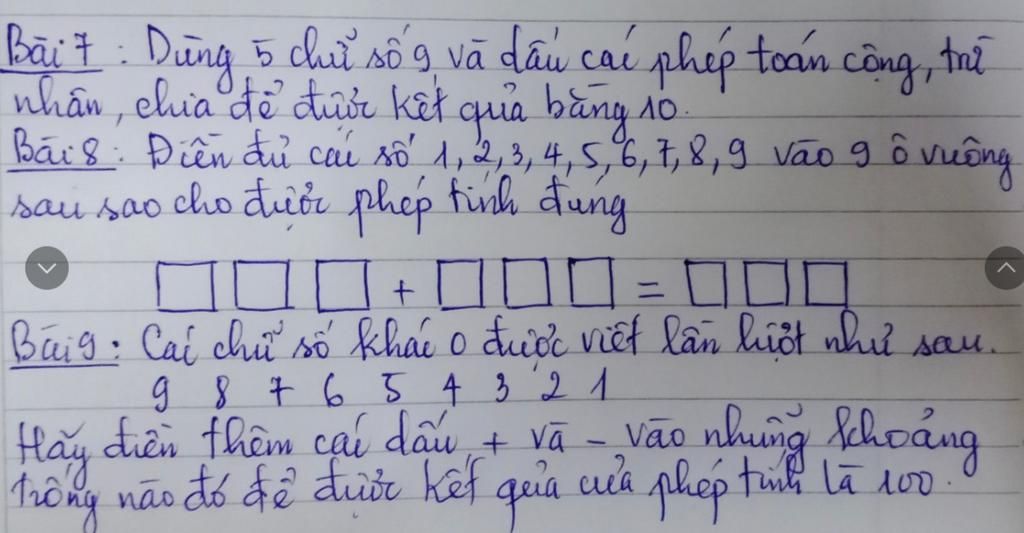 Bài 7 : Dùng 5 chữ số 9 và dấu các phép toán cộng, trừ
nhân, chia để được kết quả bằng 10.
Bài 8 : Điền đủ các số 1, 2, 3, 4, 5, 6, 7, 8, 9 vào 9 ô vuông
sau sao cho được phép tính đúng
□ □ □ + □ □ □ = □ □ □
Bài 9 : Các chữ số khác 0 được viết lần lượt như sau.
9 8 7 6 5 4 3 2 1
Hãy điền thêm các dấu + và - vào những khoảng
trống nào đó để được kết quả của phép tính là 100.